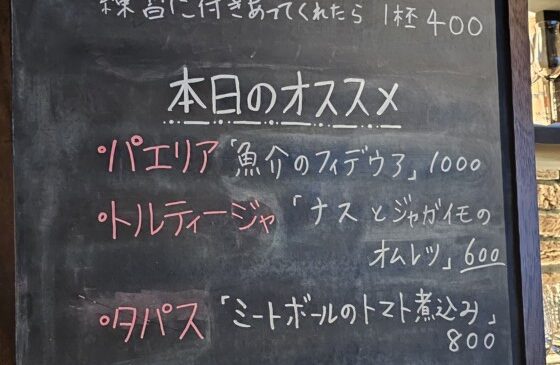 練習に付きあってくれたら 1杯 400
本日のオススメ
・パエリア「魚介のフィデウア」1000
・トルティージャ「ナスとジャガイモの
オムレツ」600
・タパス「ミートボールのトマト煮込み」
800